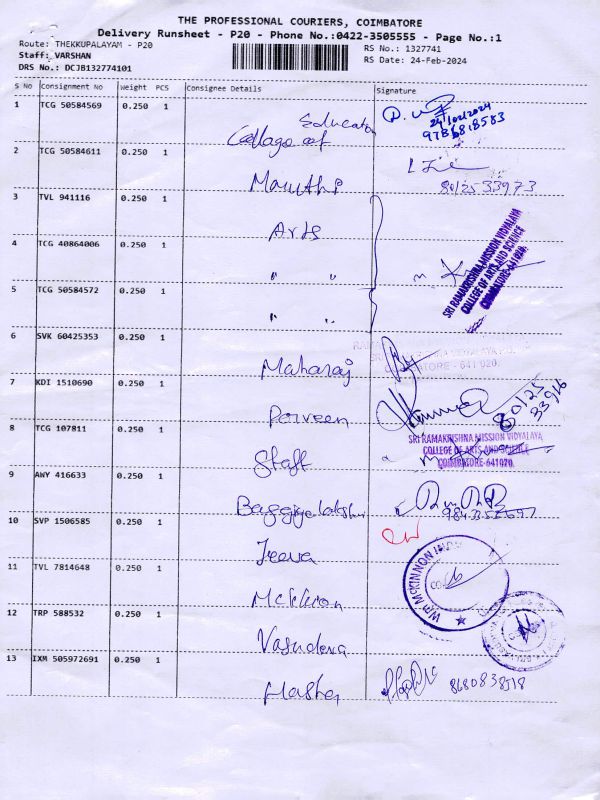 THE PROFESSIONAL COURIERS, COIMBATORE
Delivery Runsheet - P20 - Phone No.:0422-3505555 - Page No.:1
Route: THEKKUPALAYAM - P20
RS No.: 1327741
Staff: VARSHAN
RS Date: 24-Feb-2024
DRS No.: DCJB132774101
S No Consignment No Weight PCS Consignee Details Signature
1 TCG 50584569 0.250 1 College of Education 24/02/2024
2 TCG 50584611 0.250 1 Maruthi 8012533973
3 TVL 941116 0.250 1 Arts
4 TCG 40864006 0.250 1 " "
SRI RAMAKRISHNA MISSION VIDYALAYA
COLLEGE OF ARTS AND SCIENCE
COIMBATORE-641020.
5 TCG 50584572 0.250 1 " "
6 SVK 60425353 0.250 1 Maharaj
COIMBATORE - 641 020.
7 KDI 1510690 0.250 1 Parveen 80125 33916
8 TCG 107811 0.250 1 Staff
SRI RAMAKRISHNA MISSION VIDYALAYA
COLLEGE OF ARTS AND SCIENCE
COIMBATORE-641020.
9 AWY 416633 0.250 1
10 SVP 1506585 0.250 1 Jeeva
11 TVL 7814648 0.250 1
12 TRP 588532 0.250 1 Vasudeva
13 IXM 505972691 0.250 1 8680838518